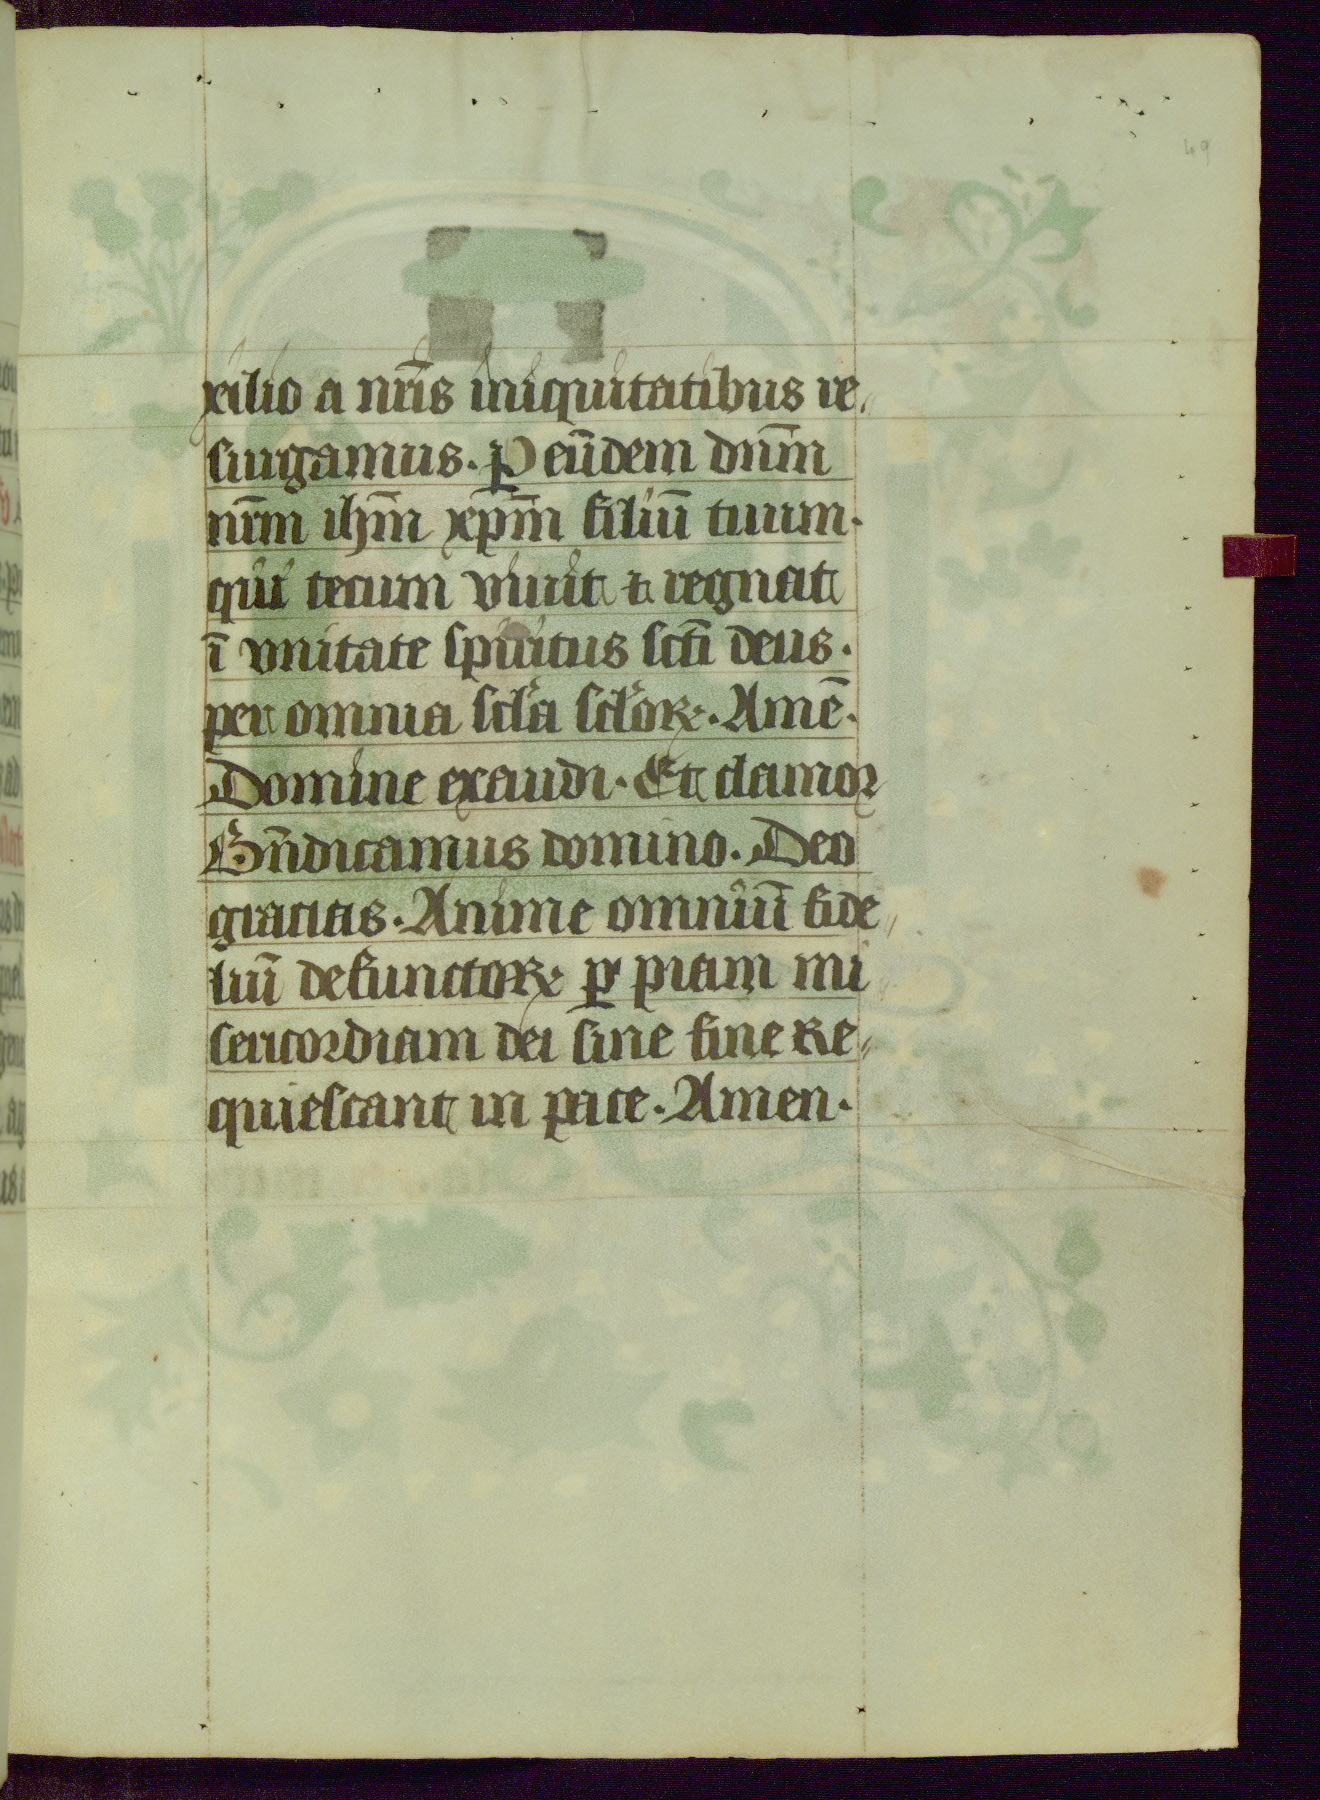 49
xilio a nr̄is iniquitatibus re〃
surgamus. P eūdem dn̄m
nr̄m ihm̄ xp̄m filiū tuum.
qui tecum viuit ⁊ regnat
ī vnitate spiritus scti deus.
per omnia scl̓a scl̓oꝝ. Amē.
Domine exaudi. Et clamor
Bn̄dicamus domino. Deo
gracias. Anime omniū fide〃
liū defunctoꝝ ꝑ piam mi
sericordiam dei sine fine Re〃
quiescant in pace. Amen.